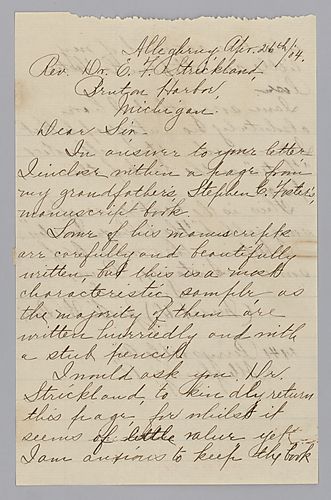 Allegheny Apr. 26th/04.
Rev. Dr. E. F. Strickland
Benton Harbor,
Michigan.
Dear Sir:
In answer to your letter
I inclose within a page from
my grandfather's Stephen C. Foster's,
manuscript book.
Some of his manuscripts
are carefully and beautifully
written, but this is a most
characteristic sample as
the majority of them are
written hurriedly and with
a stub pencil.
I would ask you Dr.
Strickland to kindly return
this page for whilst it
seems of little value yet
I am anxious to keep the book